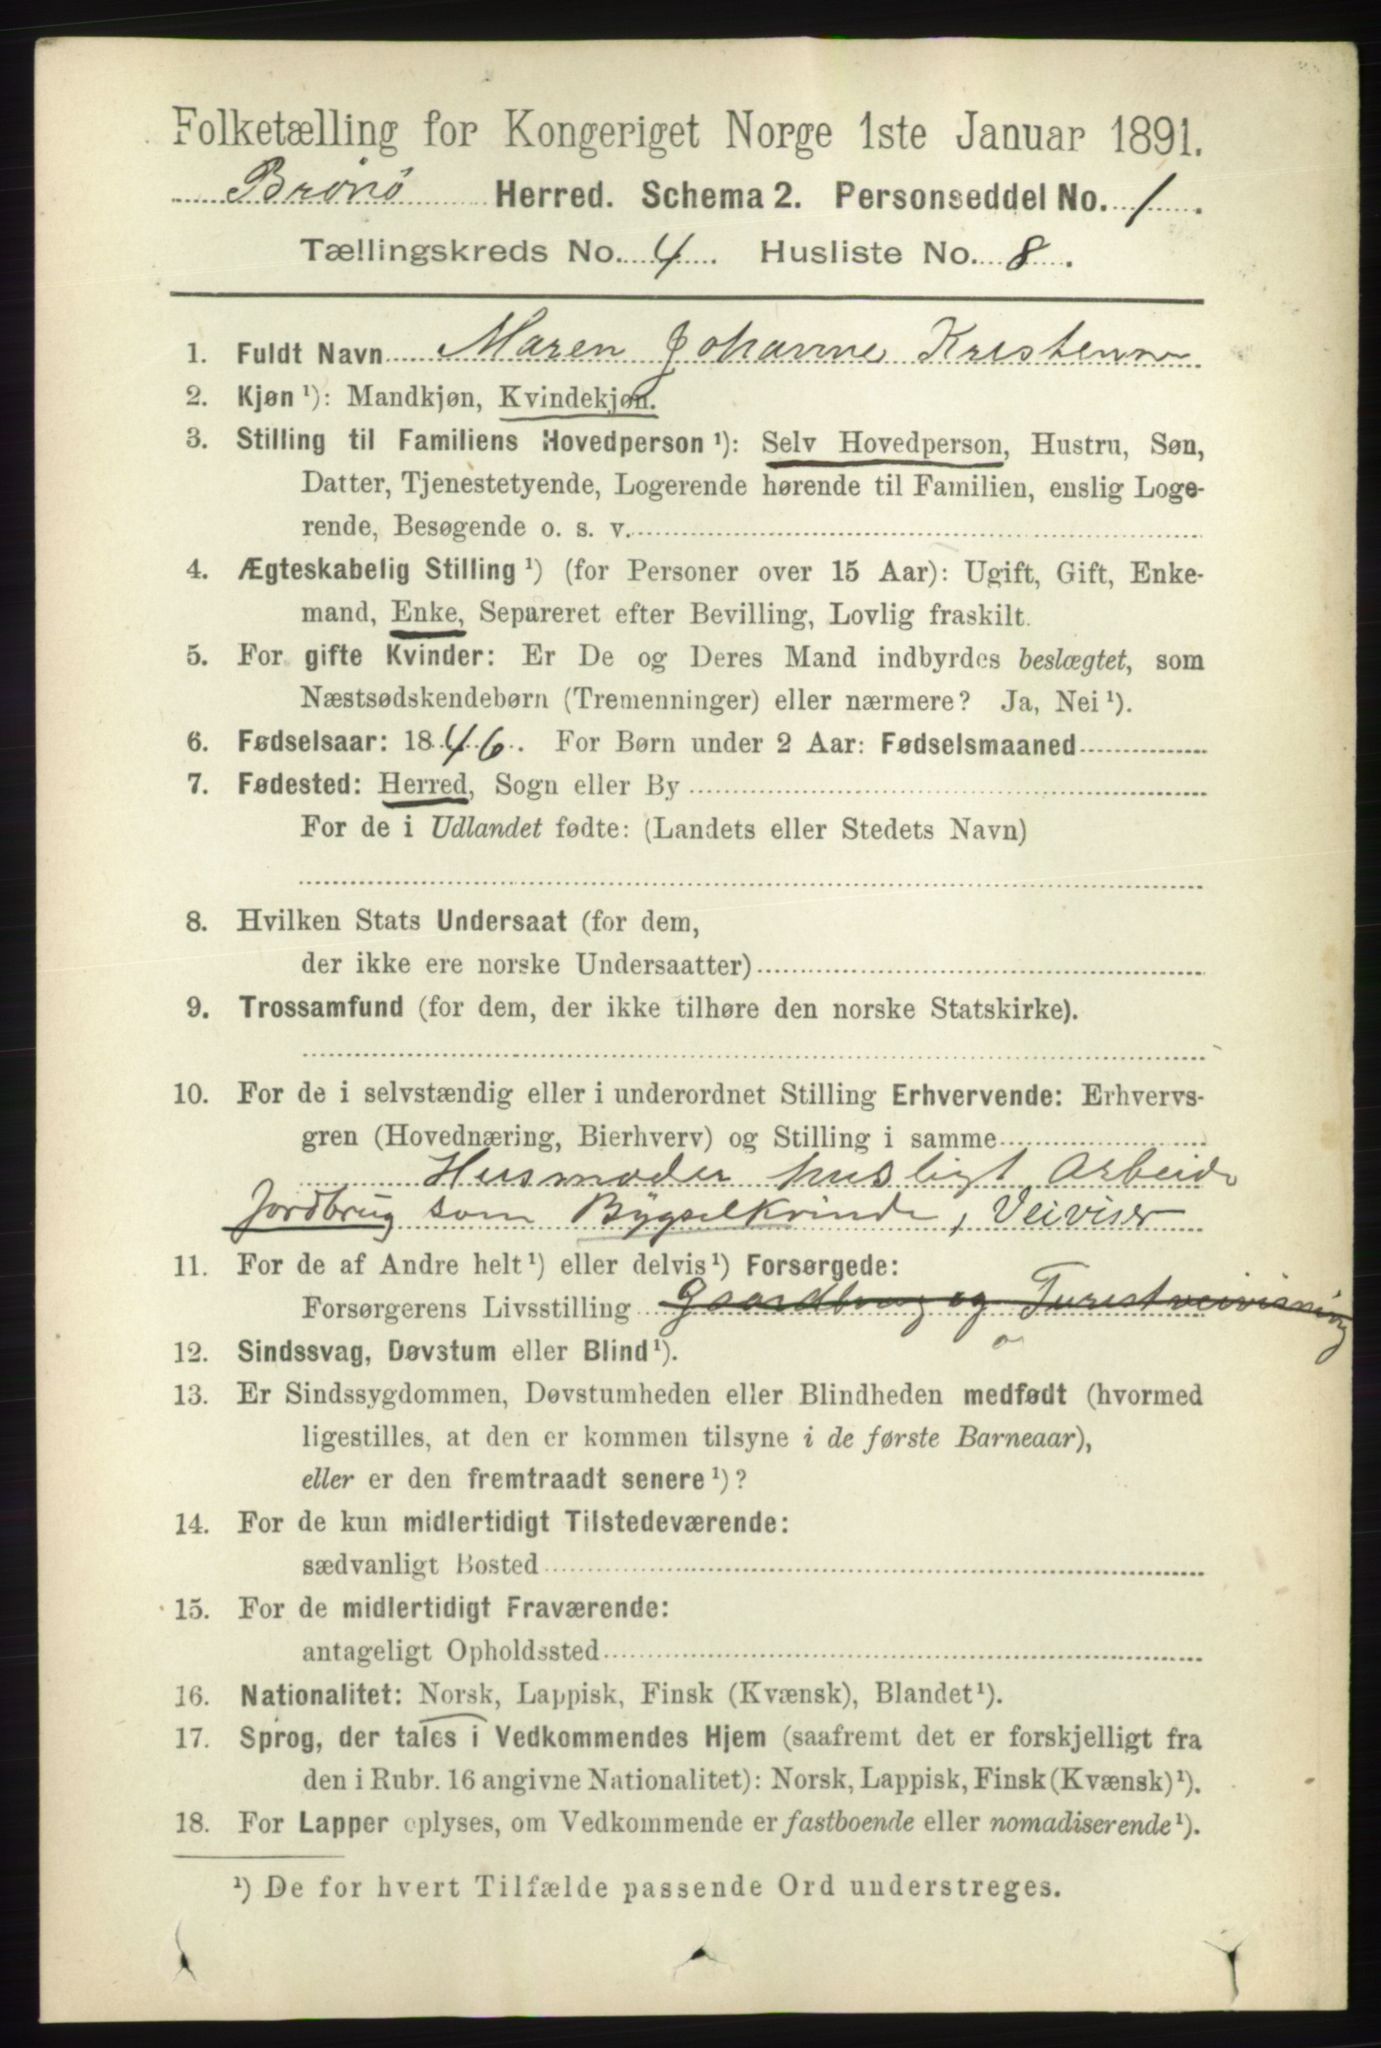 Folketælling for Kongeriget Norge 1ste Januar 1891.
Brønø Herred. Schema 2. Personseddel No. 1.
Tællingskreds No. 4. Husliste No. 8.
1. Fuldt Navn Maren Johanne Kristenn
2. Kjøn ¹): Mandkjøn, Kvindekjøn.
3. Stilling til Familiens Hovedperson ¹): Selv Hovedperson, Hustru, Søn,
Datter, Tjenestetyende, Logerende hørende til Familien, enslig Loge-
rende, Besøgende o. s. v.
4. Ægteskabelig Stilling ¹) (for Personer over 15 Aar): Ugift, Gift, Enke-
mand, Enke, Separeret efter Bevilling, Lovlig fraskilt.
5. For gifte Kvinder: Er De og Deres Mand indbyrdes beslægtet, som
Næstsødskendebørn (Tremenninger) eller nærmere? Ja, Nei ¹).
6. Fødselsaar: 1846. For Børn under 2 Aar: Fødselsmaaned
7. Fødested: Herred, Sogn eller By
For de i Udlandet fødte: (Landets eller Stedets Navn)
8. Hvilken Stats Undersaat (for dem,
der ikke ere norske Undersaatter)
9. Trossamfund (for dem, der ikke tilhøre den norske Statskirke).
10. For de i selvstændig eller i underordnet Stilling Erhvervende: Erhvervs-
gren (Hovednæring, Bierhverv) og Stilling i samme
Husmoder husligt Arbeide
Jordbrug som Bygselkvinde, Veiviser
11. For de af Andre helt ¹) eller delvis ¹) Forsørgede:
Forsørgerens Livsstilling Gaardbrug og Turistveivisning
12. Sindssvag, Døvstum eller Blind ¹).
13. Er Sindssygdommen, Døvstumheden eller Blindheden medfødt (hvormed
ligestilles, at den er kommen tilsyne i de første Barneaar),
eller er den fremtraadt senere ¹)?
14. For de kun midlertidigt Tilstedeværende:
sædvanligt Bosted
15. For de midlertidigt Fraværende:
antageligt Opholdssted
16. Nationalitet: Norsk, Lappisk, Finsk (Kvænsk), Blandet ¹).
17. Sprog, der tales i Vedkommendes Hjem (saafremt det er forskjelligt fra
den i Rubr. 16 angivne Nationalitet): Norsk, Lappisk, Finsk (Kvænsk) ¹).
18. For Lapper oplyses, om Vedkommende er fastboende eller nomadiserende ¹).
¹) De for hvert Tilfælde passende Ord understreges.